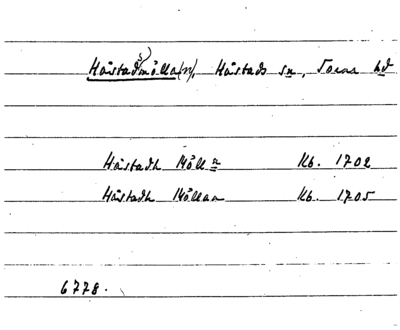 Hårstads mölla(n), Hårstads sn, Torna hd
Hårstadh Mölln Kb. 1702
Hårstadh Möllan Kb. 1705
6778.